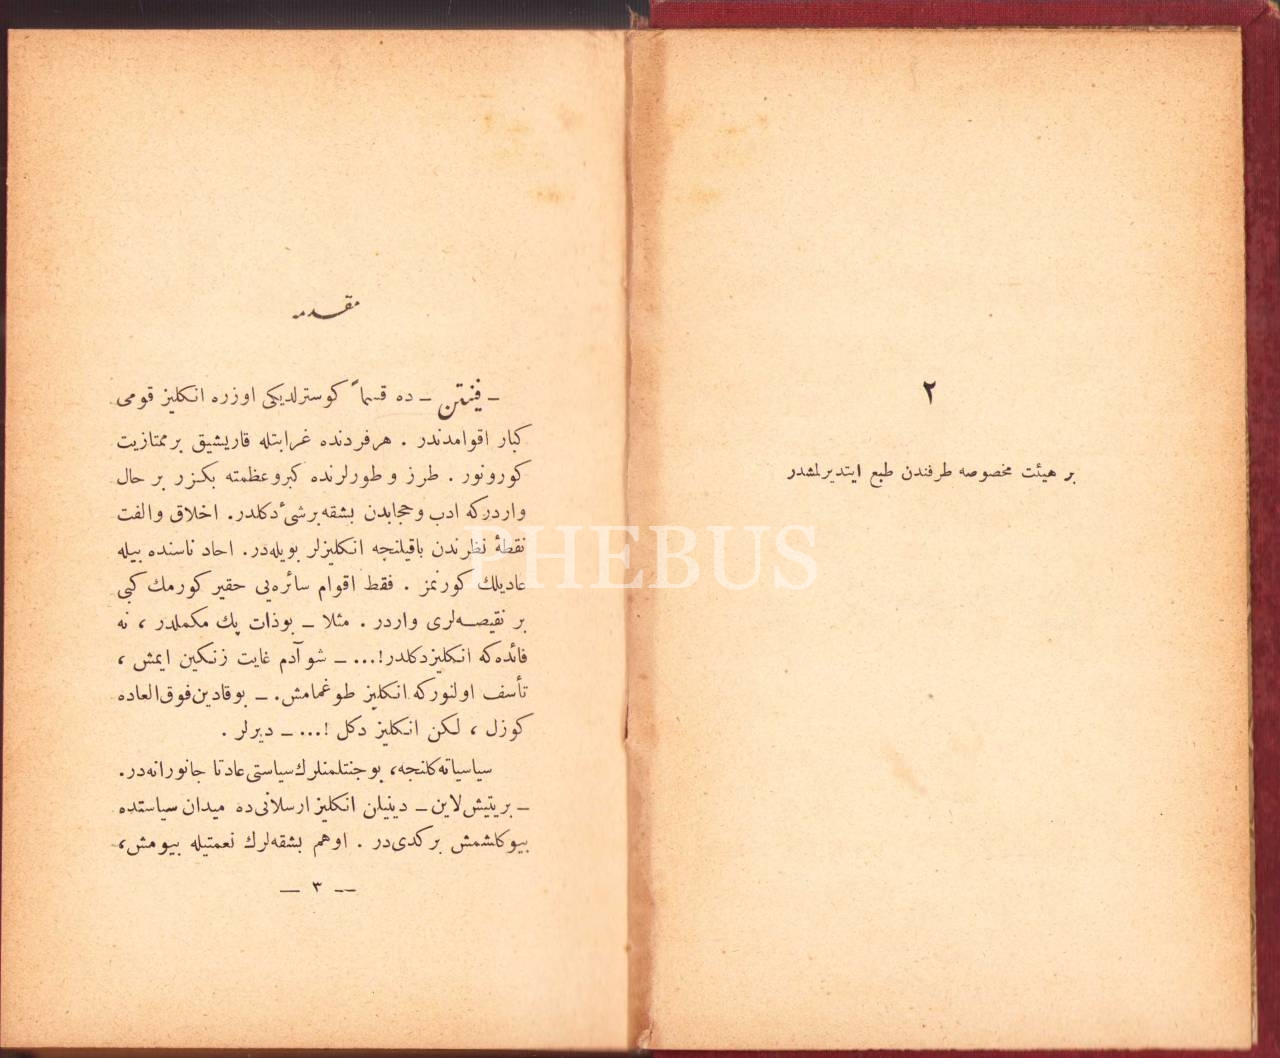 ٢
بر هيئت مخصوصه طرفندن طبع ايتديرلمشدر
مقدمه
ـ فينتن ـ ده قسماً كوسترلديكى اوزره انكليز قومى
كبار اقوامدندر . هرفردنده غرابتله قاريشيق برممتازيت
كورونور . طرز و طورلرنده كبروعظمته بكزر بر حال
واردركه ادب و حجابدن بشقه برشئ دكلدر. اخلاق والفت
نقطهٔ نظرندن باقيلنجه انكليزلر بويله‌در. احاد ناسنده بيله
عاديلك كورنمز . فقط اقوام سائره‌يى حقير كورمك كبى
بر نقيصه‌لرى واردر . مثلا ـ بوذات پك مكملدر ، نه
فائده‌كه انكليزدكلدر!... ـ شو آدم غايت زنكين ايمش ،
تأسف اولنوركه انكليز طوغمامش. ـ بوقادين فوق‌العاده
كوزل ، لكن انكليز دكل !... ـ ديرلر .
سياسياته‌كلنجه، بوجنتلمنلرك سياستى عادتا جانورانه‌در.
ـ بريتيش لاين ـ دينيلن انكليز ارسلانى‌ده ميدان سياستده
بيوكلشمش بركدى‌در . اوهم بشقه‌لرك نعمتيله بيومش،
— ٣ —
PHEBUS